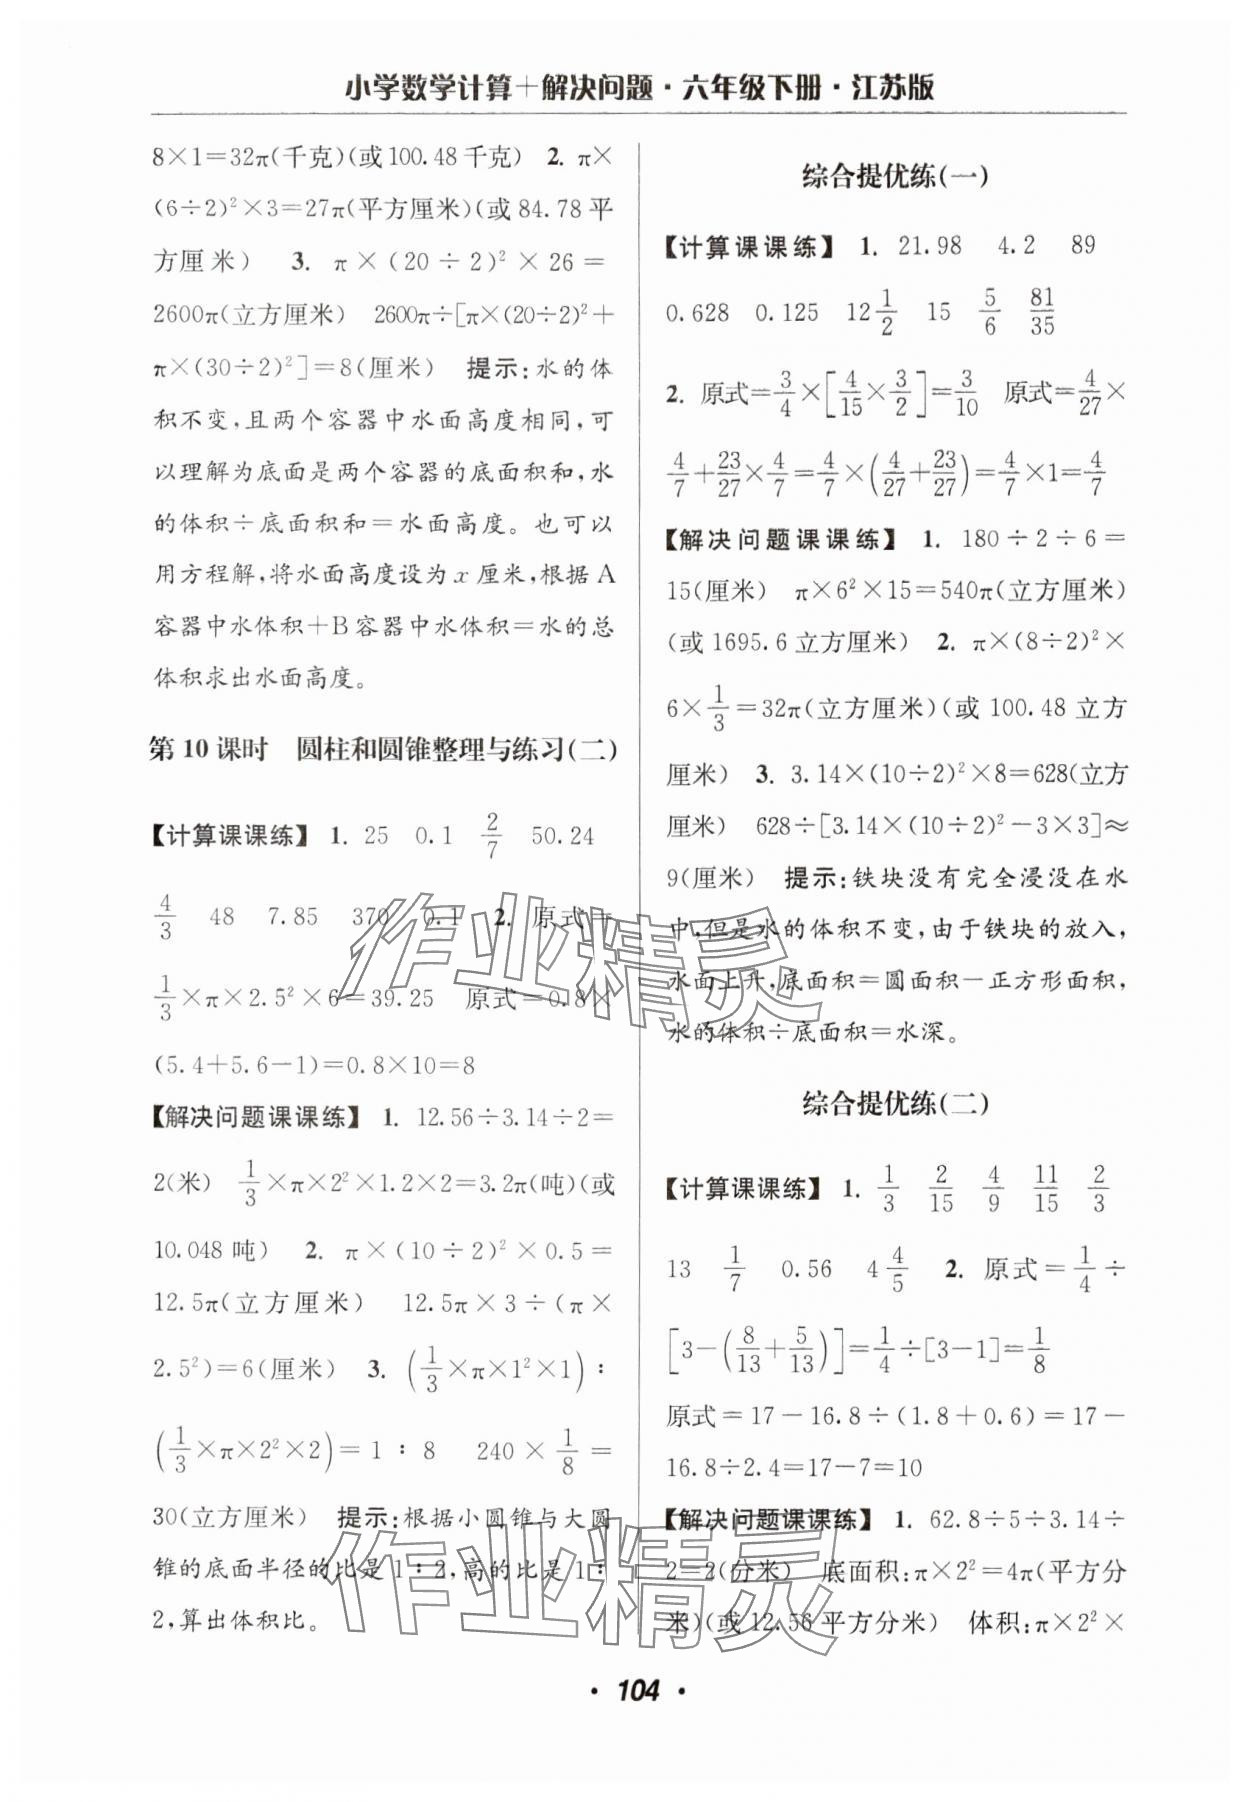 小学数学计算＋解决问题·六年级下册·江苏版
8×1=32π(千克)(或100.48千克) 2. π×
(6÷2)²×3=27π(平方厘米)(或84.78平
方厘米) 3. π×(20÷2)²×26=
2600π(立方厘米) 2600π÷[π×(20÷2)²+
π×(30÷2)²]=8(厘米) 提示:水的体
积不变,且两个容器中水面高度相同,可
以理解为底面是两个容器的底面积和,水
的体积÷底面积和=水面高度。也可以
用方程解,将水面高度设为x厘米,根据A
容器中水体积+B容器中水体积=水的总
体积求出水面高度。
第10课时 圆柱和圆锥整理与练习(二)
【计算课课练】 1. 25 0.1 2/7 50.24
4/3 48 7.85 370 0.1 2. 原式=
1/3×π×2.5²×6=39.25 原式=0.8×
(5.4+5.6-1)=0.8×10=8
【解决问题课课练】 1. 12.56÷3.14÷2=
2(米) 1/3×π×2²×1.2×2=3.2π(吨)(或
10.048吨) 2. π×(10÷2)²×0.5=
12.5π(立方厘米) 12.5π×3÷(π×
2.5²)=6(厘米) 3. (1/3×π×1²×1):
(1/3×π×2²×2)=1:8 240×1/8=
30(立方厘米) 提示:根据小圆锥与大圆
锥的底面半径的比是1:2,高的比是1:
2,算出体积比。
综合提优练(一)
【计算课课练】 1. 21.98 4.2 89
0.628 0.125 12 1/2 15 5/6 81/35
2. 原式=3/4×[4/15×3/2]=3/10 原式=4/27×
4/7+23/27×4/7=4/7×(4/27+23/27)=4/7×1=4/7
【解决问题课课练】 1. 180÷2÷6=
15(厘米) π×6²×15=540π(立方厘米)
(或1695.6立方厘米) 2. π×(8÷2)²×
6×1/3=32π(立方厘米)(或100.48立方
厘米) 3. 3.14×(10÷2)²×8=628(立方
厘米) 628÷[3.14×(10÷2)²-3×3]≈
9(厘米) 提示:铁块没有完全浸没在水
中,但是水的体积不变,由于铁块的放入,
水面上升,底面积=圆面积-正方形面积,
水的体积÷底面积=水深。
综合提优练(二)
【计算课课练】 1. 1/3 2/15 4/9 11/15 2/3
13 1/7 0.56 4 4/5 2. 原式=1/4÷
[3-(8/13+5/13)]=1/4÷[3-1]=1/8
原式=17-16.8÷(1.8+0.6)=17-
16.8÷2.4=17-7=10
【解决问题课课练】 1. 62.8÷5÷3.14÷
2=2(分米) 底面积:π×2²=4π(平方分
米)(或12.56平方分米) 体积:π×2²×
·104·
作业精灵
作业精灵